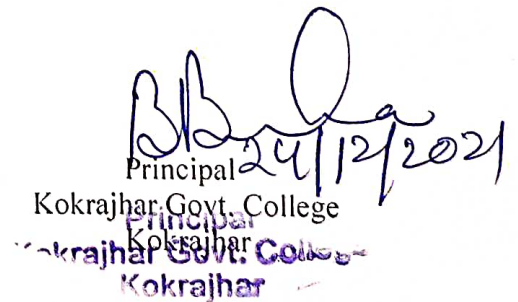 24/12/2021
Principal
Kokrajhar Govt. College
Kokrajhar
Principal
Kokrajhar Govt. College
Kokrajhar